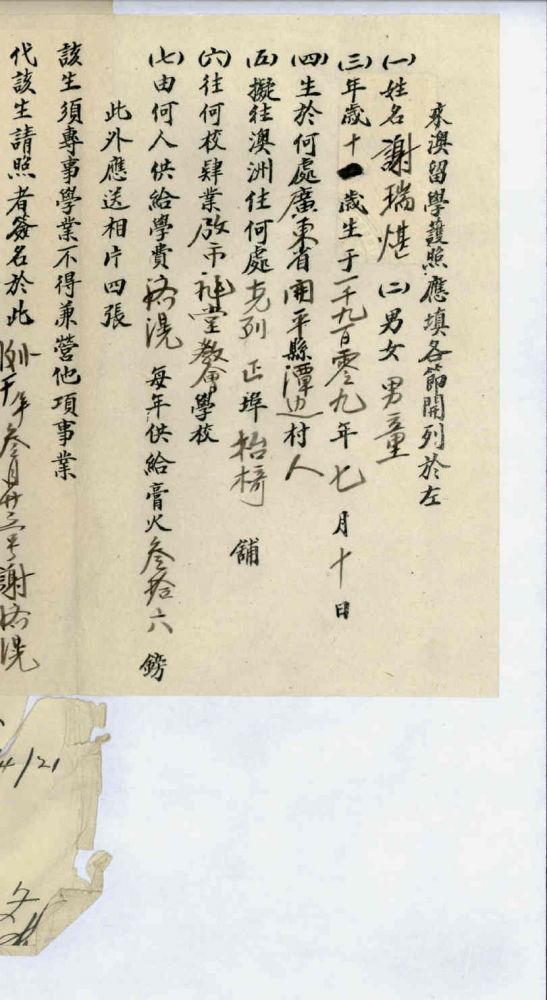 來澳留學護照應填各節開列於左
(一)姓名 謝瑞堪 (二)男女 男童
(三)年歲十一歲生于一千九百零九年七月十日
(四)生於何處廣東省開平縣潭边村人
(五)擬往澳洲住何處 克列 正埠 枱椅 舖
(六)往何校肄業 礼堂教會學校
(七)由何人供給學費 滉 每年供給膏火叁拾六鎊
此外應送相片四張
該生須專事學業不得兼營他項事業
代該生請照者簽名於此 年叁月廿三 謝滉
4/21